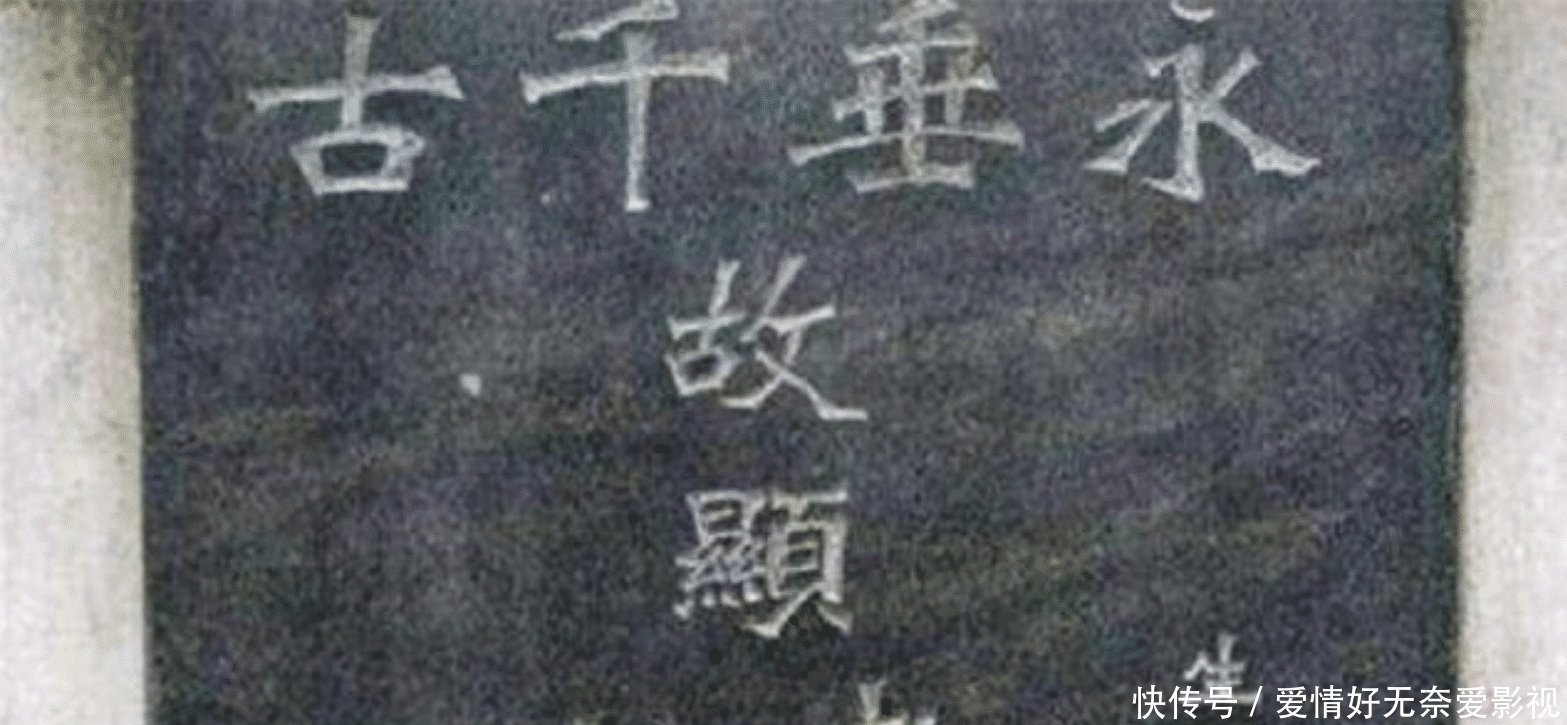 永垂千古
故
顯
生
快传号 / 爱情好无奈爱影视